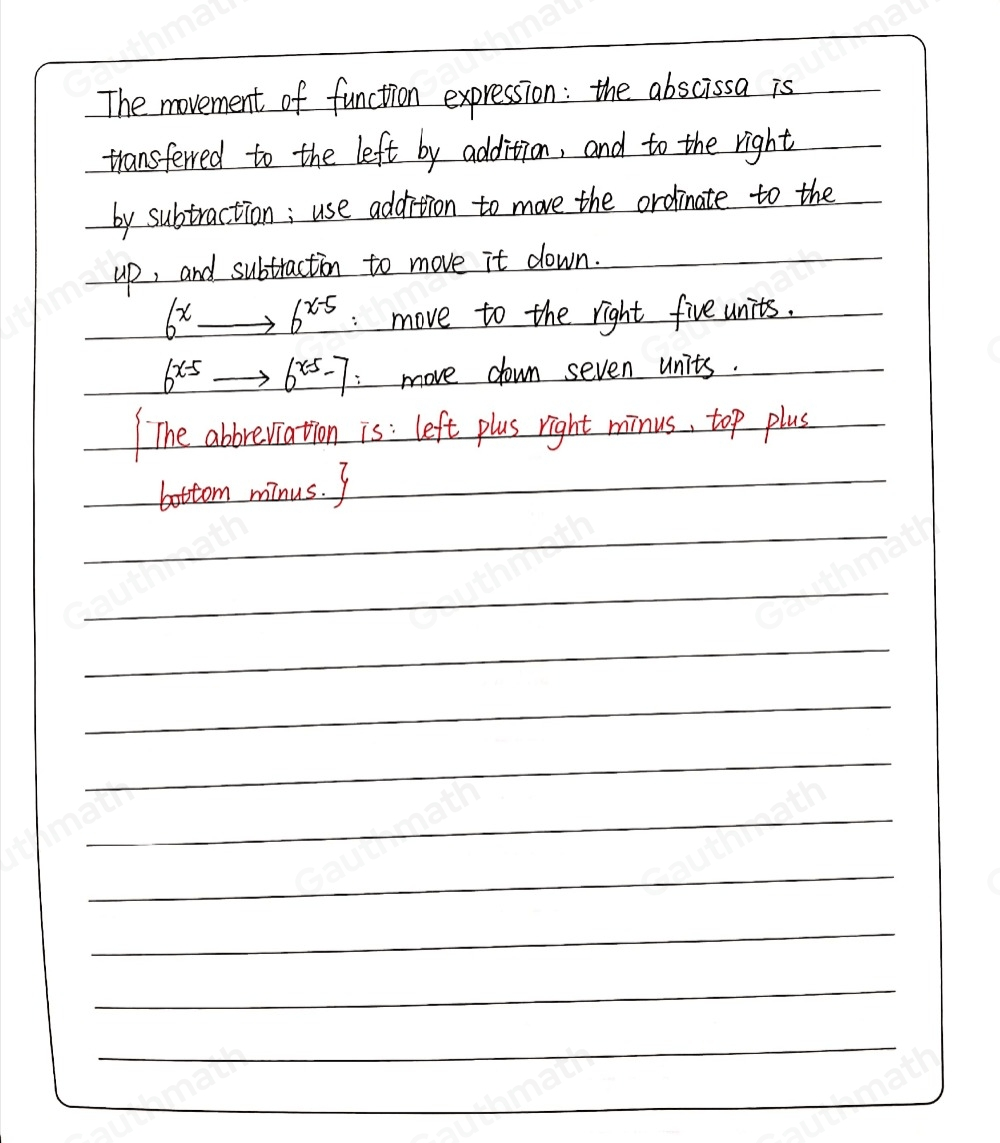 The movement of function expression: the abscissa is
transferred to the left by addition, and to the right
by subtraction; use addition to move the ordinate to the
up, and subtraction to move it down.
6^x ⟶ 6^{x-5}: move to the right five units.
6^{x-5} ⟶ 6^{x-5}-7: move down seven units.
{The abbreviation is: left plus right minus, top plus
bottom minus.}
Gauthmath